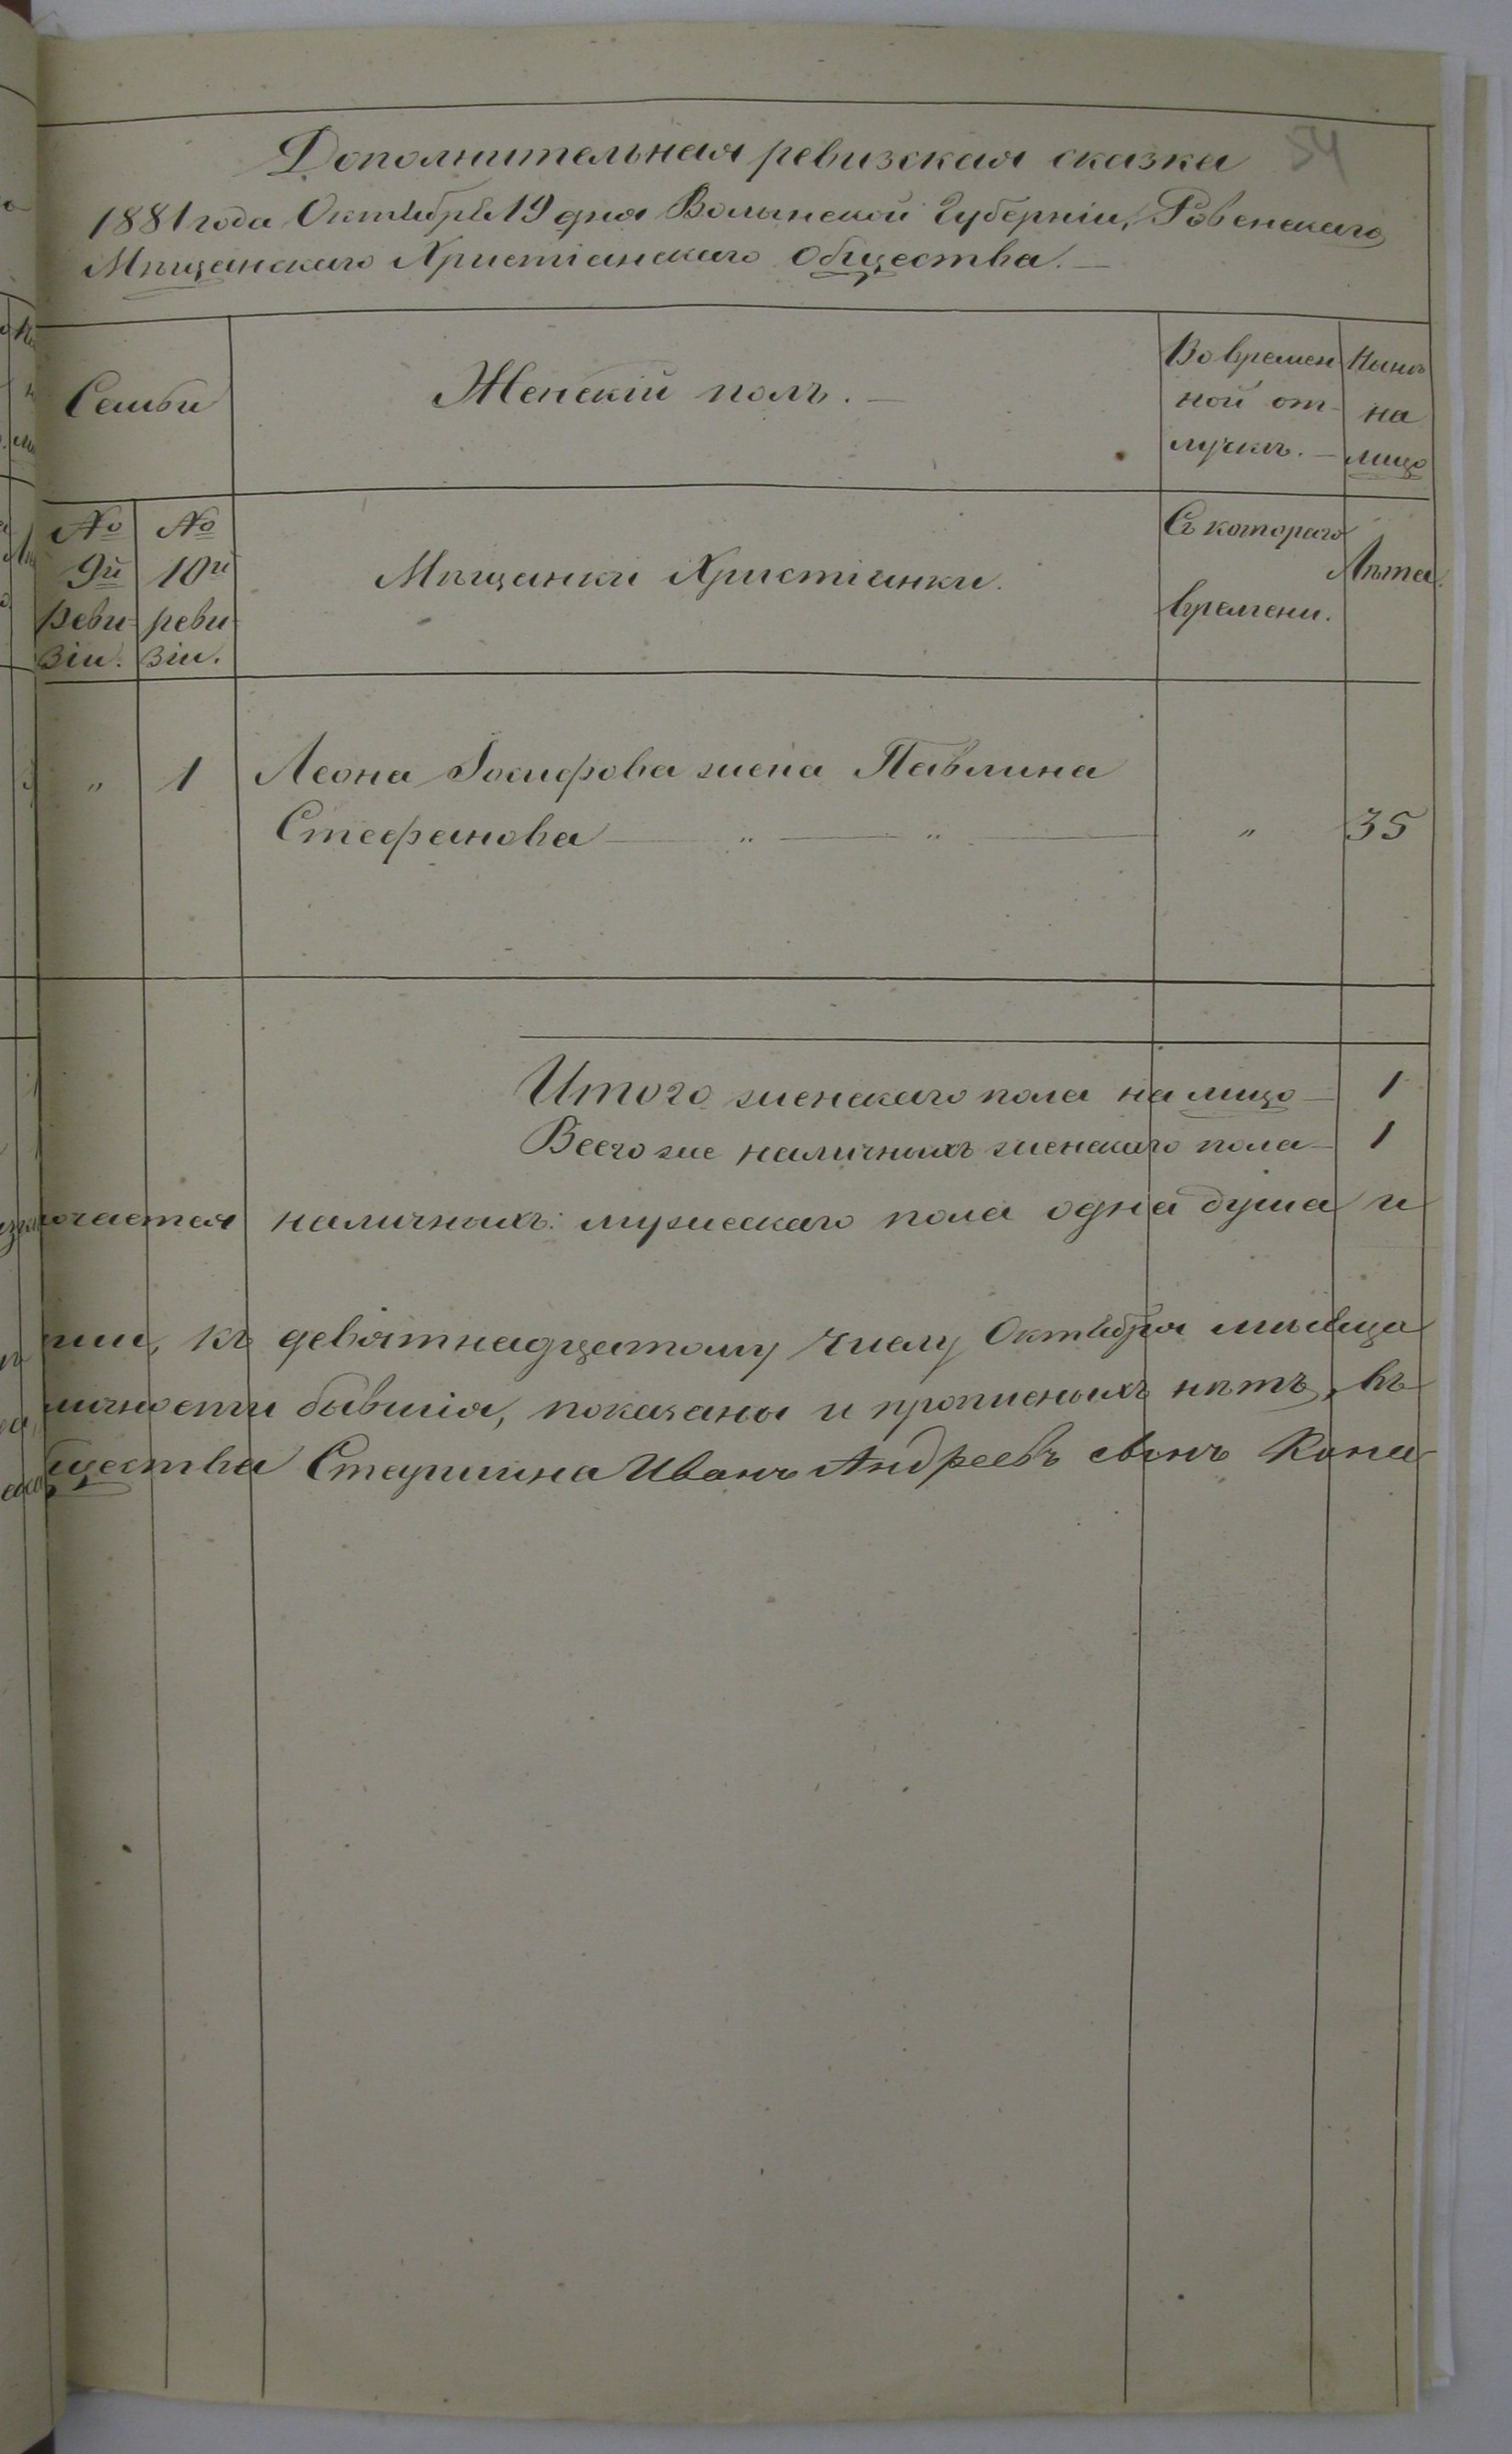 54
Дополнительная ревизская сказка
1881 года Октября 19 дня Волынской Губерніи, Ровенскаго
Мѣщанскаго Христіанскаго Общества. —
Семьи
Женскій полъ. —
Во времен
ной от-
лучкѣ. —
Нынѣ
на
лицо
№
9й
реви-
зіи.
№
10й
реви-
зіи.
Мѣщанки Христіанки.
Съ котораго
времени.
Лѣта.
" 1 Леона Іосифова жена Павлина
Стефанова — " — " — " 35
Итого женскаго пола на лицо — 1
Всего же наличныхъ женскаго пола — 1
ючается наличныхъ: мужескаго пола одна душа и
к девятнадцатому числу Октября мѣсяца
личности бывшія, показаны и прописныхъ нѣтъ, въ
щества Старшина Иванъ Андреевъ сынъ Копа